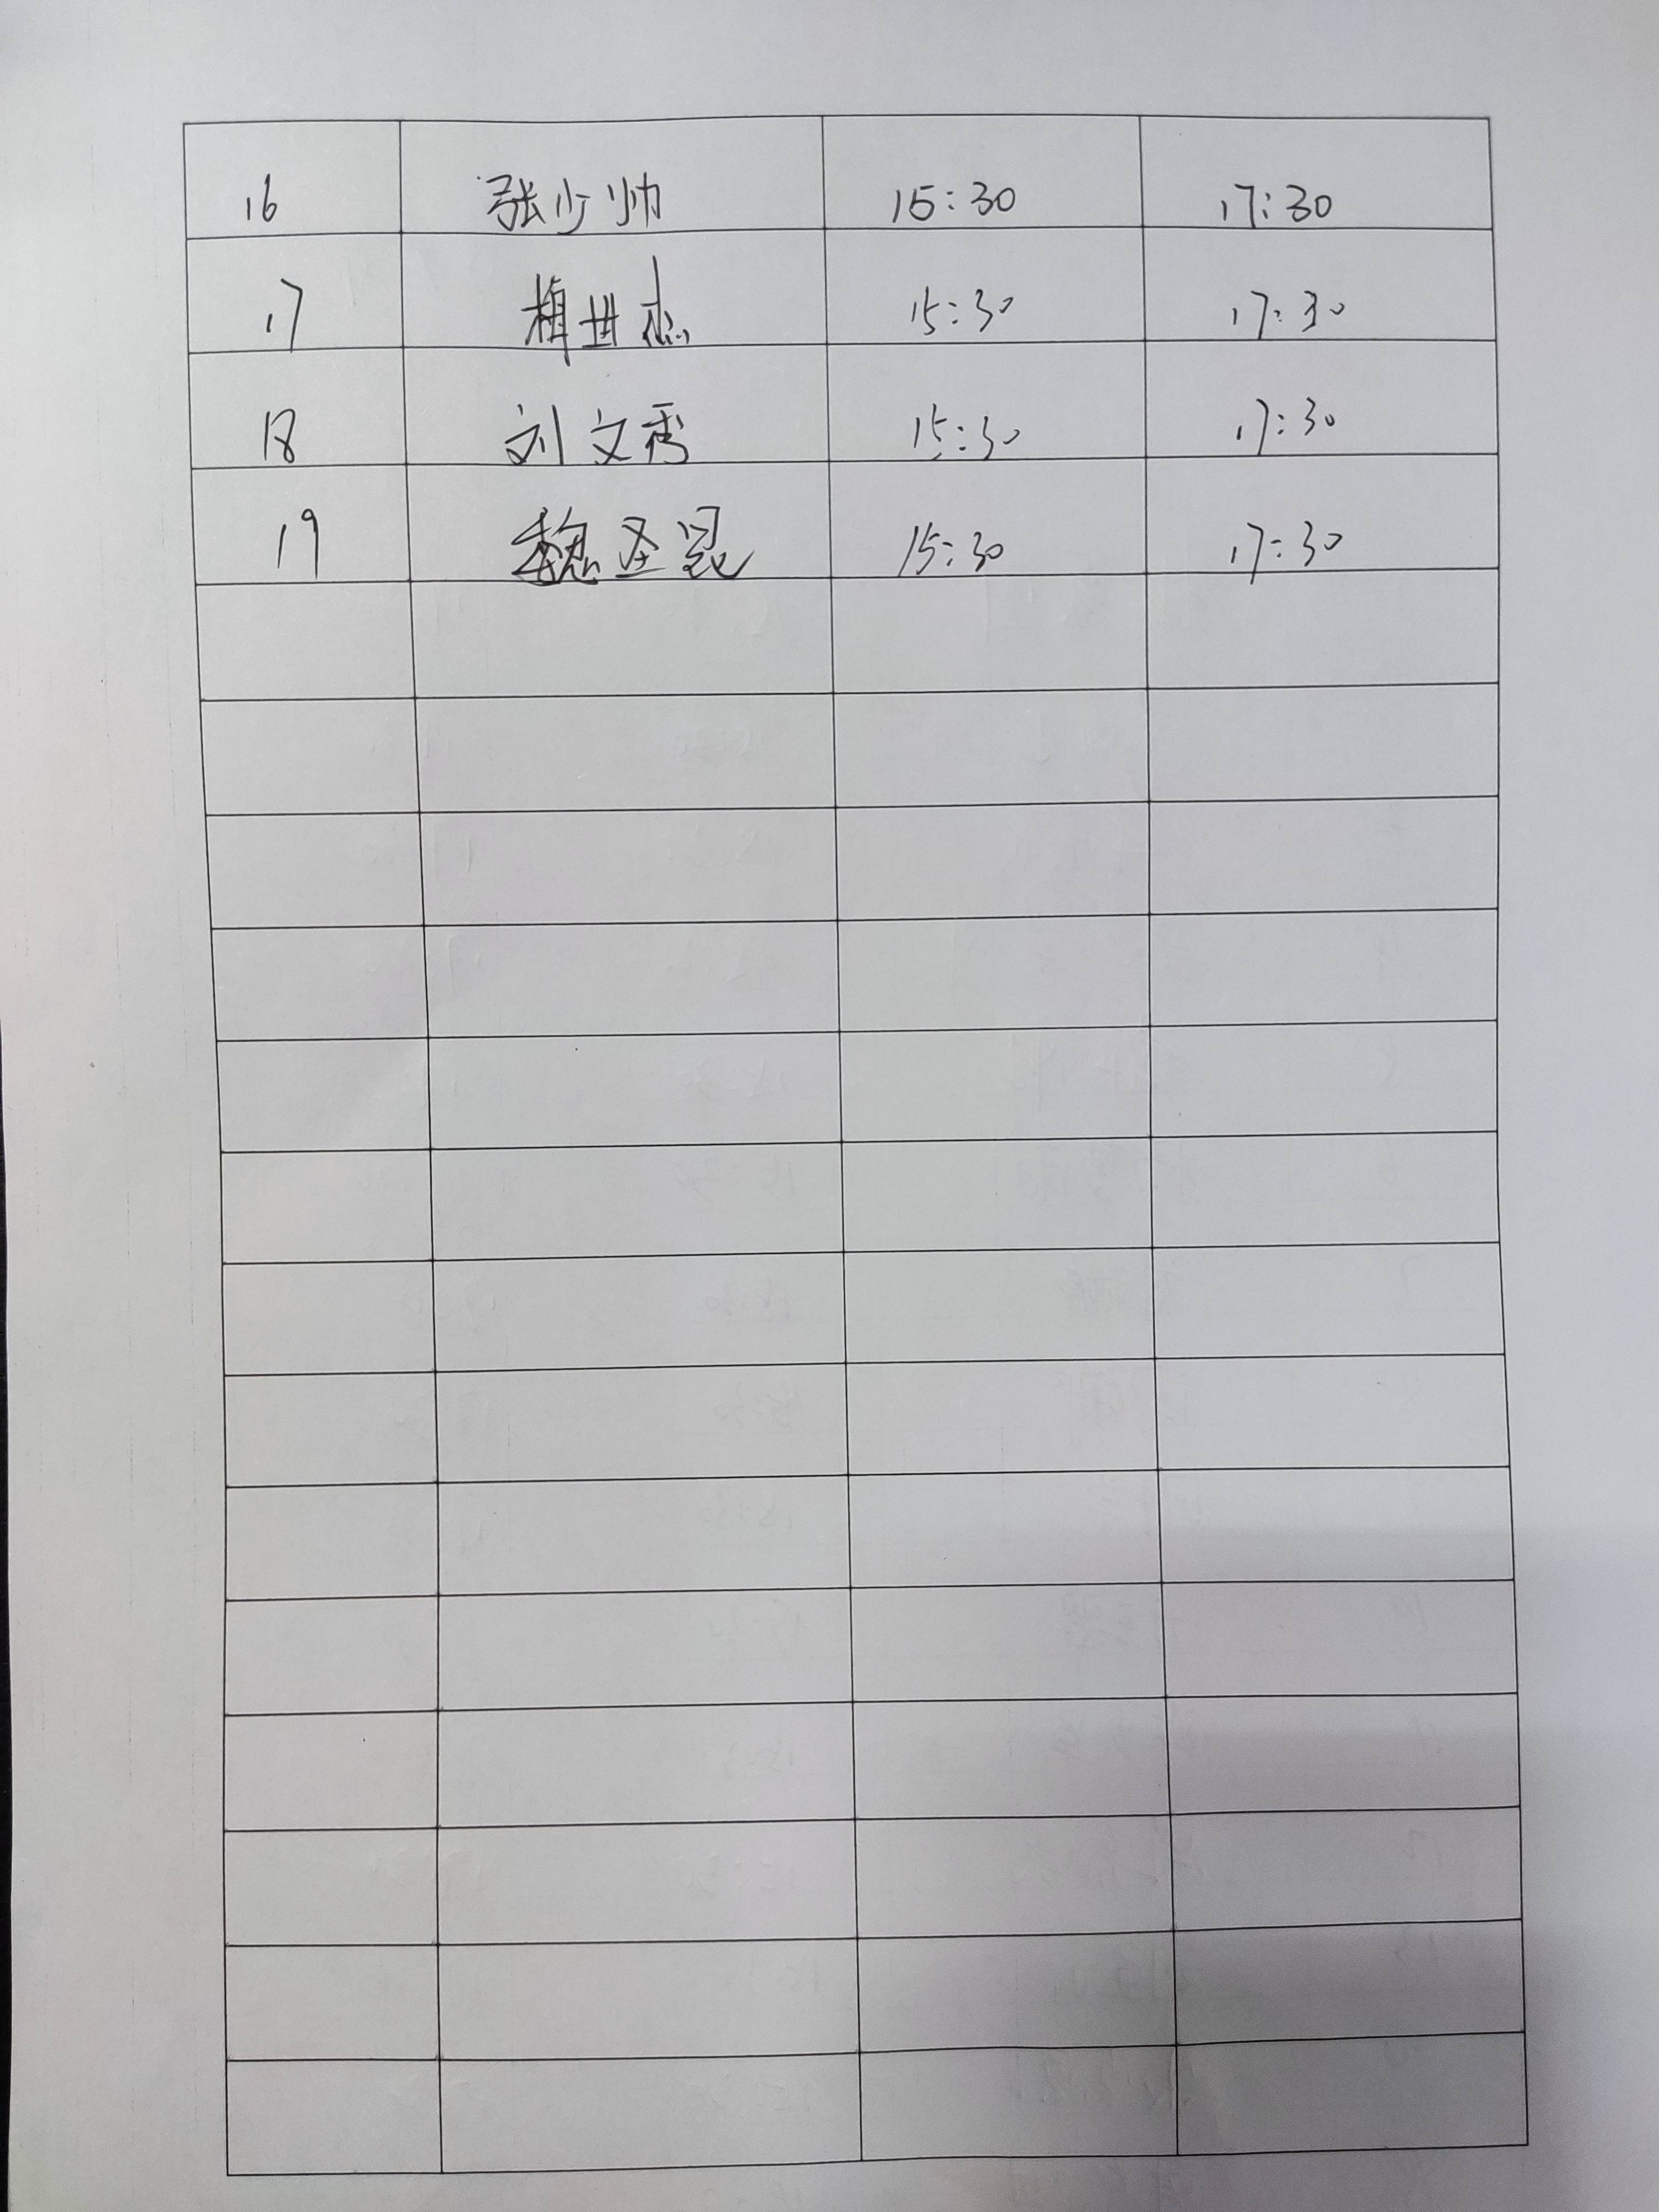 16 张少帅 15:30 17:30
17 梅世杰 15:30 17:30
18 刘文秀 15:30 17:30
19 魏圣昆 15:30 17:30